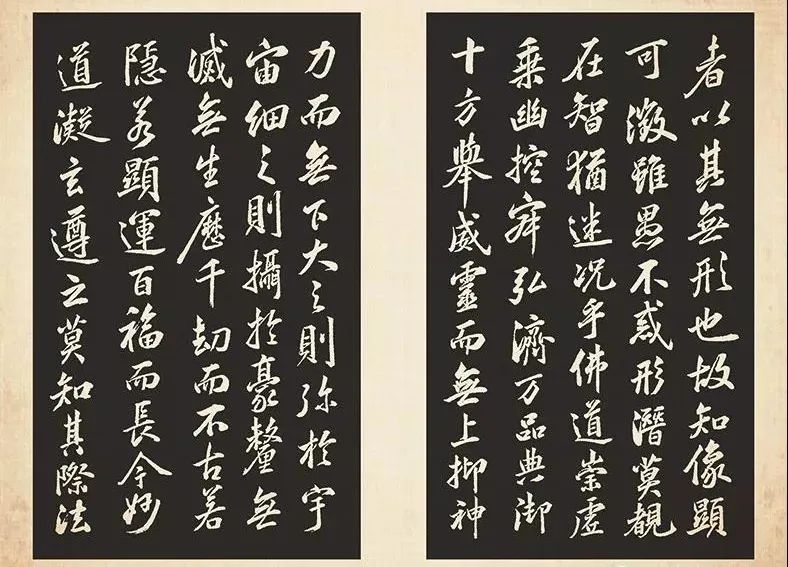 者以其無形也故知像顯
可徵雖愚不惑形潛莫覩
在智猶迷况乎佛道崇虛
乗幽控寂弘濟万品典御
十方舉威靈而無上抑神
力而無下大之則弥於宇
宙細之則攝於豪釐無
滅無生歷千劫而不古若
隱若顯運百福而長今妙
道凝玄遵之莫知其際法